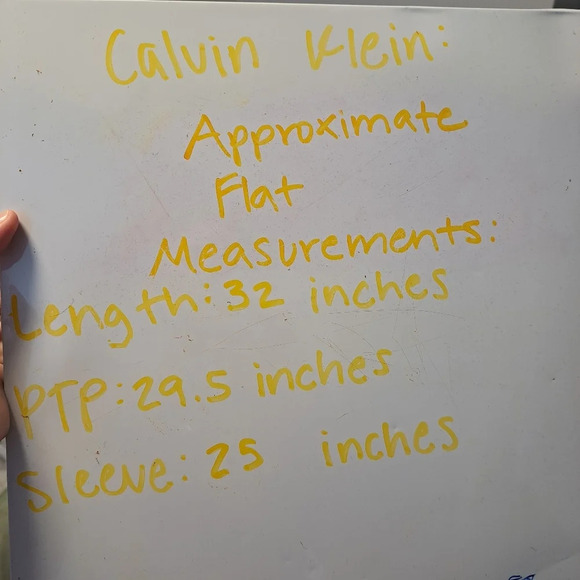 Calvin Klein:
Approximate
Flat
Measurements:
Length: 32 inches
PTP: 29.5 inches
Sleeve: 25 inches